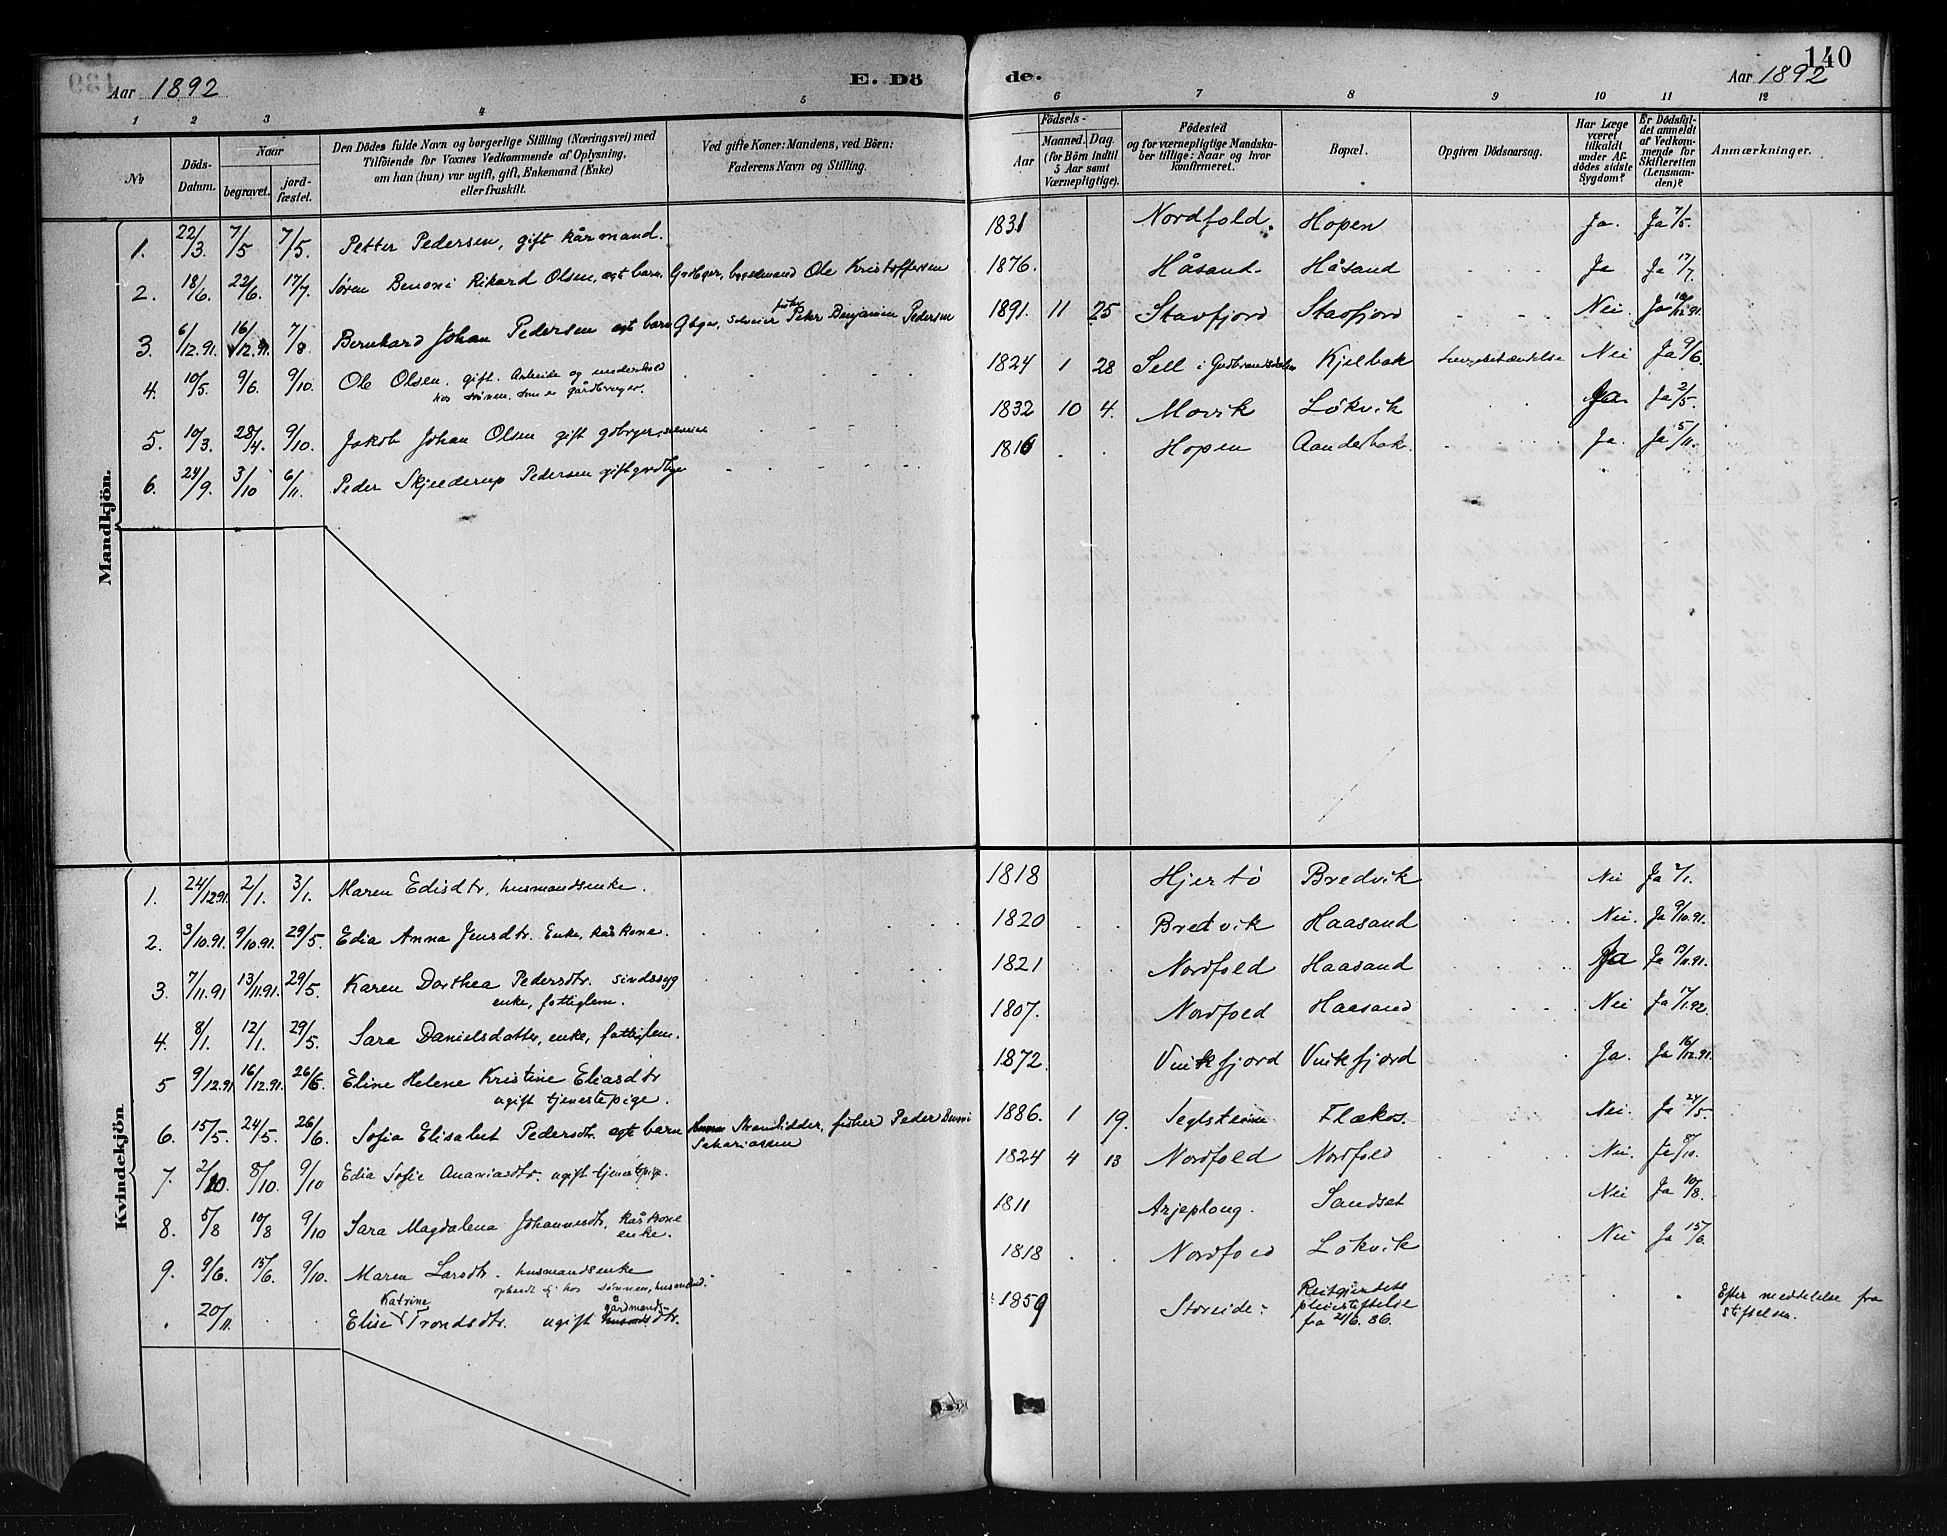 140
Aar 1892
E. Dö
de.
Aar 1892
1 2 3 4 5 6 7 8 9 10 11 12
№
Döds-Datum.
Naar
begravet.
jord-fæstet.
Den Dödes fulde Navn og borgerlige Stilling (Næringsvei) med
Tilföiende for Voxnes Vedkommende af Oplysning,
om han (hun) var ugift, gift, Enkemand (Enke)
eller fraskilt.
Ved gifte Koner: Mandens, ved Börn:
Faderens Navn og Stilling.
Födsels-
Aar
Maaned. Dag.
(for Börn indtil
5 Aar samt
Værnepligtige).
Födested
og for værnepligtige Mandska-
ber tillige: Naar og hvor
konfirmeret.
Bopæl.
Opgiven Dödsaarsag.
Har Læge
været
tilkaldt
under Af-
dödes sidste
Sygdom?
Er Dödsfal-
det anmeldt
af Vedkom-
mende for
Skifteretten
(Lensman-
den)?
Anmærkninger.
Mandkjön.
1. 22/3. 7/5 7/5. Petter Pedersen, gift kårmand. 1831 Nordfold. Hopen Ja. Ja 7/5.
2. 18/6. 22/6. 17/7. Søren Benoni Rikard Olsen, egt barn. Grdbger, bygselmand Ole Kristoffersen 1876. Håsand. Håsand Ja Ja 17/7.
3. 6/12.91. 16/12.91. 7/8 Bernhard Johan Pedersen egt barn Gbger, selveier fisker Peter Benjamin Pedersen 1891. 11 25 Stavfjord Stavfjord Nei. Ja 16/12.91.
4. 10/5. 9/6. 9/10. Ole Olsen. gift. Arbeide og underhold 1824 1 28 Sell i Gudbrandsdalen Kjelbak Lungebetændelse Nei Ja 9/6.
hos sönnen, som er gårdbruger.
5. 10/3. 28/4. 9/10. Jakob Johan Olsen gift gdbrger, selveier 1832 10 4. Movik Løkvik Ja. Ja 2/5.
6. 24/9. 3/10 6/11. Peder Skjelderup Pedersen gift grdbger 1816 Hopen Aanderbak. Ja. Ja 5/11.
Kvindekjön.
1. 24/12 91. 2/1. 3/1. Maren Edisdtr, husmandsenke. 1818 Hjertø Bredvik Nei Ja 2/1.
2. 3/10.91. 9/10.91. 29/5. Edia Anna Jensdtr. Enke, kårkone. 1820 Bredvik Haasand Nei. Ja 9/10.91.
3. 7/11.91 13/11.91. 29/5. Karen Dorthea Pedersdtr. sindssyg 1821 Nordfold Haasand Ja Ja 13/11.91.
enke, fattiglem.
4. 8/1. 12/1. 29/5. Sara Danielsdatter, enke, fattiglem. 1807. Nordfold Haasand Nei Ja 17/1.92.
5 9/12.91 16/12.91. 26/6. Eline Helene Kristine Eliasdtr 1872. Vinkfjord Vinkfjord Ja. Ja 16/12.91.
ugift tjenestepige.
6. 15/5. 24/5. 26/6. Sofia Elisabet Pedersdtr. egte barn Strandsidder, fisker Peder Benoni 1886. 1 19. Seglsteinn Flækos. Nei. Ja 24/5.
Sakariassen
7. 2/10. 8/10. 9/10 Edia Sofie Ananiasdtr. ugift tjenestepige. 1824 4 13 Nordfold Nordfold Nei. Ja 8/10.
8. 5/8 10/8 9/10 Sara Magdalena Johannesdtr. Kårkone 1811 Arjeplong. Sandset Nei Ja 10/8.
enke.
9. 9/6. 15/6. 9/10. Maren Larsdtr. husmandsenke 1818 Nordfold Løkvik Nei Ja 15/6.
opholdt sj hos sønnen, husmand.
20/11. Elise Katrine Trondsdtr. ugift gårdmands-dtr. 1859 Storeide. Reitgjerdets
pleiestiftelse
fra 21/6. 86. Efter meddelelse fra
Stiftelsen.